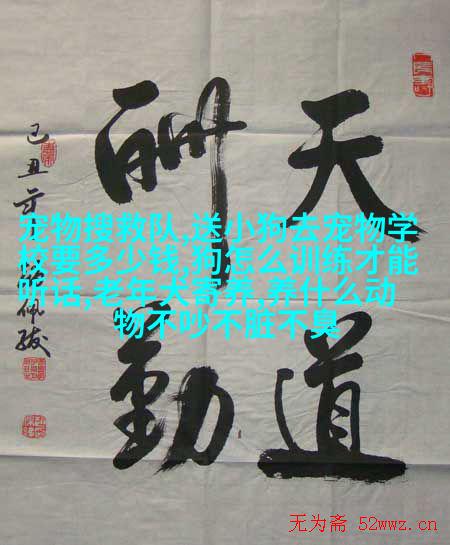 天道
酬勤
己丑
宠物搜救队,送小狗去宠物学
校要多少钱,狗怎么训练才能
听话,老年犬寄养,养什么动
物不吵不脏不臭
无为斋 52wwz.cn